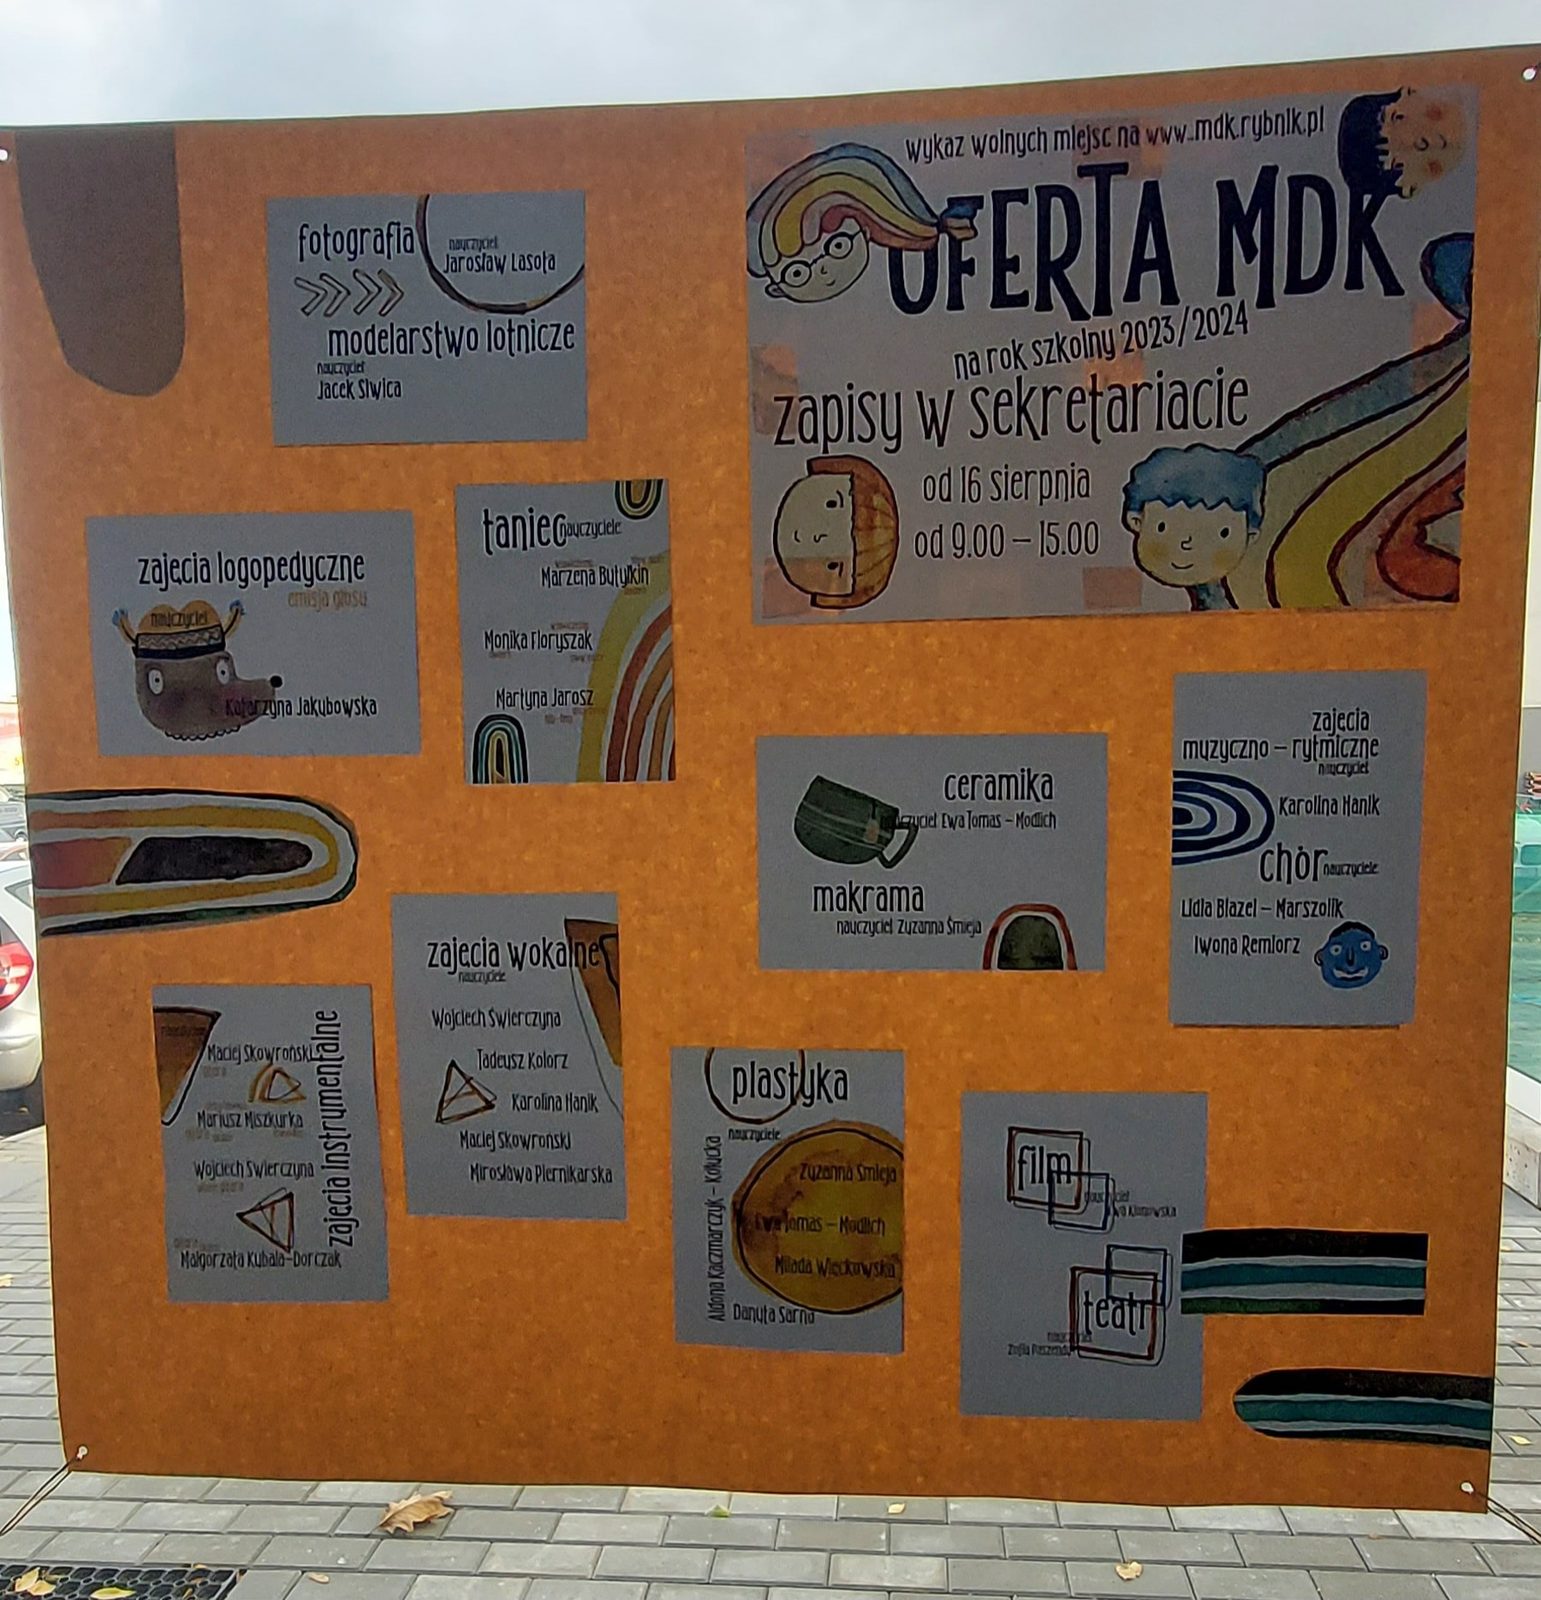 wykaz wolnych miejsc na www.mdk.rybnik.pl
OFERTA MDK
na rok szkolny 2023/2024
zapisy w sekretariacie
od 16 sierpnia
od 9.00 – 15.00
fotografia
nauczyciel
Jarosław Lasota
modelarstwo lotnicze
nauczyciel
Jacek Siwica
zajęcia logopedyczne
emisja głosu
nauczyciel
Katarzyna Jakubowska
taniec nauczyciele
Marzena Butylkin
Monika Floryszak
Martyna Jarosz
ceramika
nauczyciel Ewa Tomas – Modlich
makrama
nauczyciel Zuzanna Śmieja
zajęcia
muzyczno – rytmiczne
nauczyciel
Karolina Hanik
chór nauczyciele
Lidia Blazel – Marszolik
Iwona Remiorz
zajęcia wokalne
nauczyciele
Wojciech Świerczyna
Tadeusz Kolorz
Karolina Hanik
Maciej Skowroński
Mirosława Piernikarska
zajęcia instrumentalne
Maciej Skowroński
Mariusz Miszkurka
Wojciech Świerczyna
Małgorzata Kubala-Dorczak
plastyka
nauczyciele
Aldona Kaczmarczyk – Kołucka
Zuzanna Śmieja
Ewa Tomas – Modlich
Milada Więckowska
Danuta Sarna
film
nauczyciel
teatr
nauczyciel
Zofia